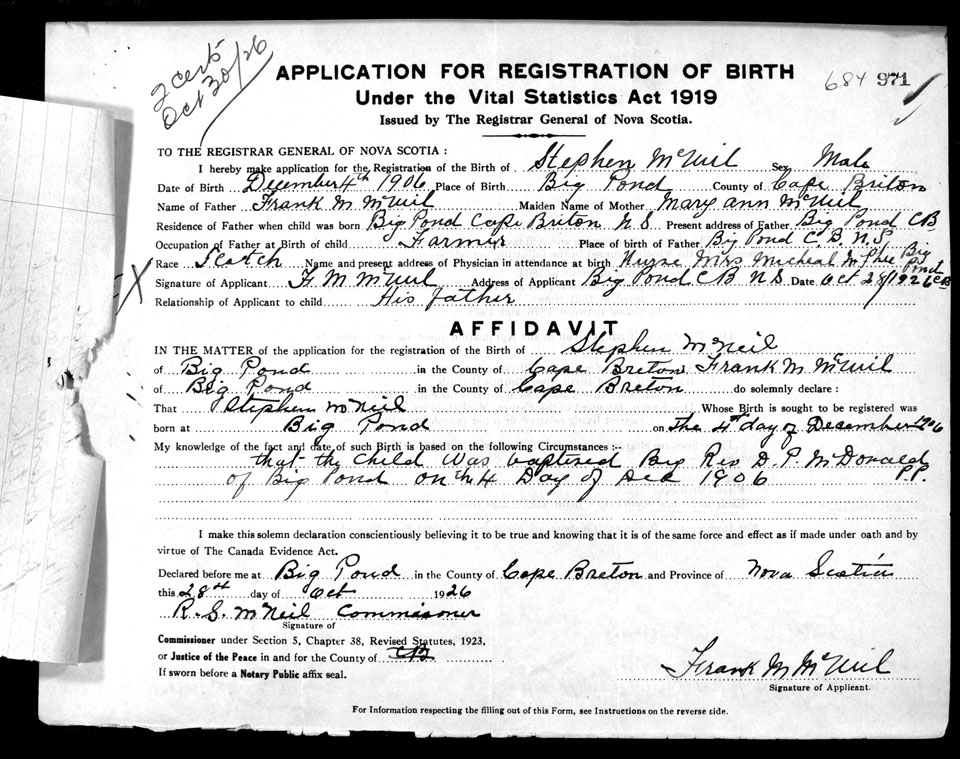 2 Certs
Oct 30/26
684 971
APPLICATION FOR REGISTRATION OF BIRTH
Under the Vital Statistics Act 1919
Issued by The Registrar General of Nova Scotia.
TO THE REGISTRAR GENERAL OF NOVA SCOTIA :
I hereby make application for the Registration of the Birth of Stephen McNeil Sex Male
Date of Birth December 4th 1906 Place of Birth Big Pond County of Cape Briton
Name of Father Frank M McNeil Maiden Name of Mother Mary ann McNeil
Residence of Father when child was born Big Pond Cape Briton N S Present address of Father Big Pond CB
Occupation of Father at Birth of child Farmer Place of birth of Father Big Pond C. B N. S
Race Scotch Name and present address of Physician in attendance at birth Nurse Mrs Micheal McPhee Big Pond CB
Signature of Applicant F M McNeil Address of Applicant Big Pond CB N S Date Oct 28/1926
Relationship of Applicant to child His father
AFFIDAVIT
IN THE MATTER of the application for the registration of the Birth of Stephen McNeil
of Big Pond in the County of Cape Breton Frank M. McNeil
of Big Pond in the County of Cape Breton do solemnly declare :
That Stephen McNeil Whose Birth is sought to be registered was
born at Big Pond on The 4th day of December 1906
My knowledge of the fact and date of such Birth is based on the following Circumstances :-
that thy Child Was baptised Big Rev D. P. McDonald P.P.
of Big Pond on th 4 Day of Dec 1906
I make this solemn declaration conscientiously believing it to be true and knowing that it is of the same force and effect as if made under oath and by
virtue of The Canada Evidence Act.
Declared before me at Big Pond in the County of Cape Breton and Province of Nova Scotia
this 28th day of Oct 1926
R. S. McNeil Commissoner
Signature of
Commissioner under Section 5, Chapter 38, Revised Statutes, 1923,
or Justice of the Peace in and for the County of CB
If sworn before a Notary Public affix seal.
Frank M McNeil
Signature of Applicant.
For Information respecting the filling out of this Form, see Instructions on the reverse side.